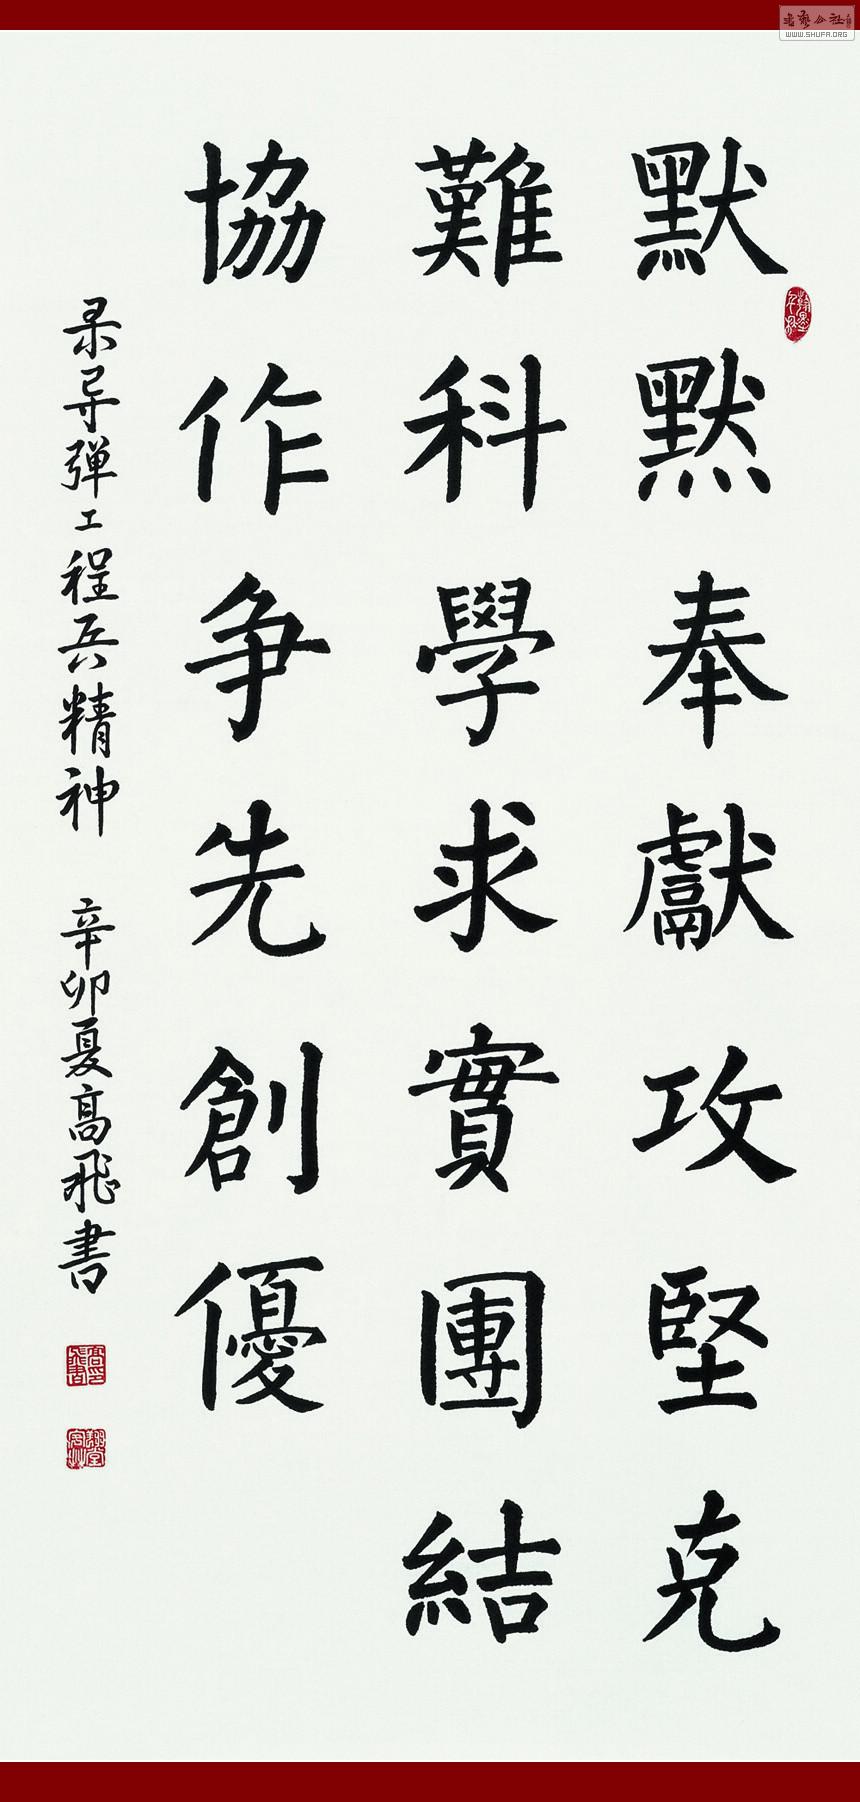 默默奉獻攻堅克
難科學求實團結
協作争先創優
录导弹工程兵精神 辛卯夏高飛書
WWW.SHUFA.ORG